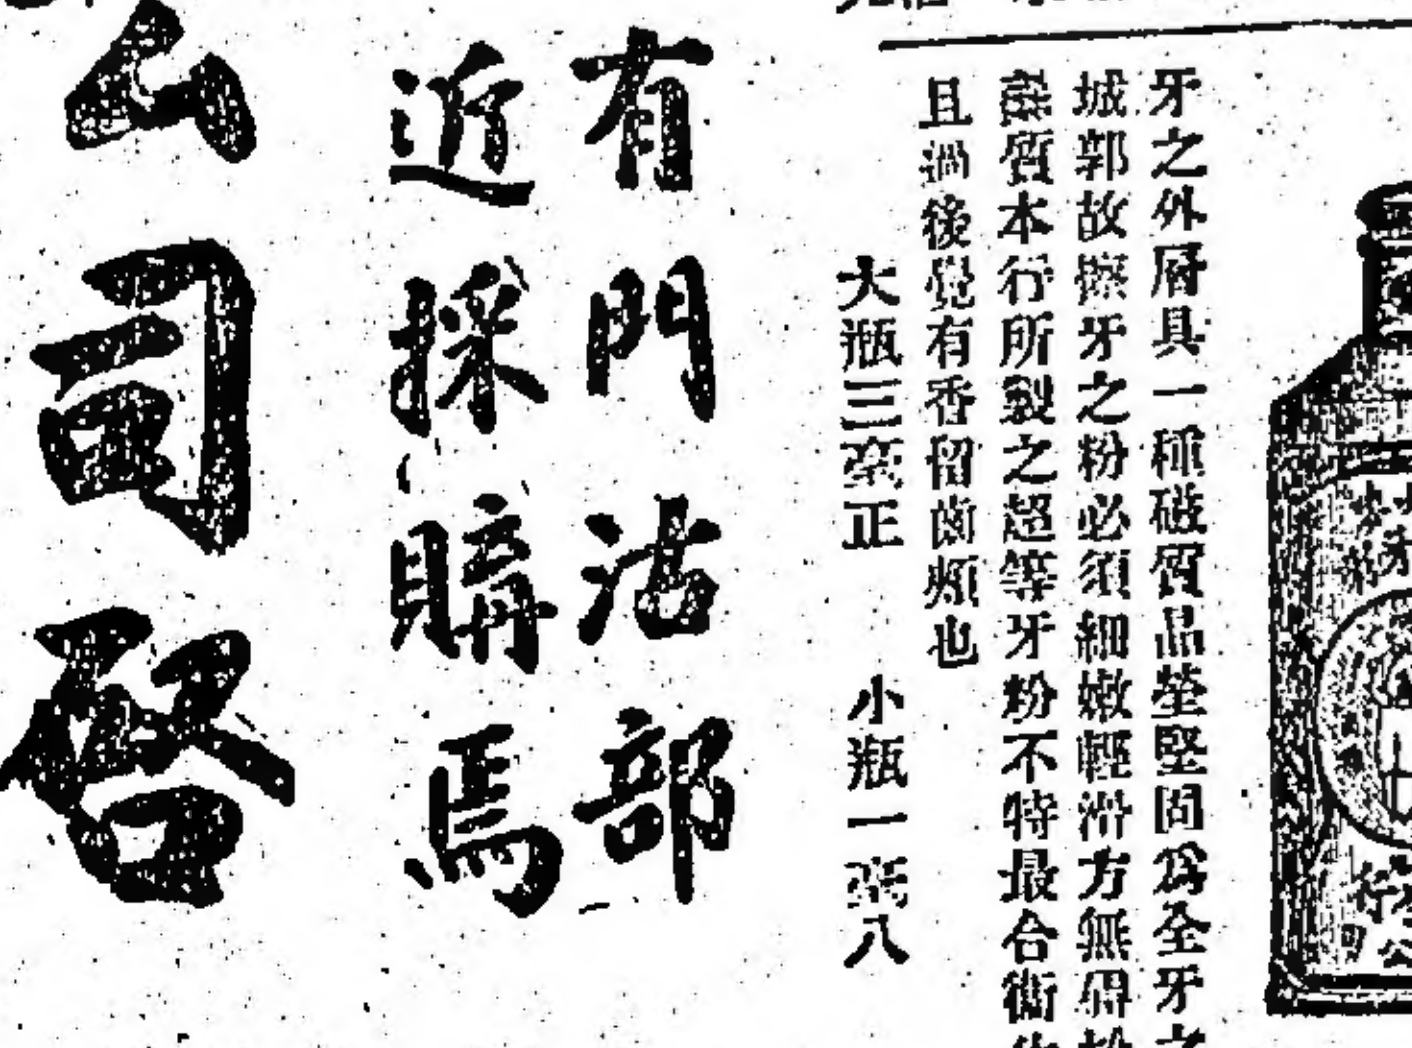 牙之外層具一種磁質晶瑩堅固為全牙之
城郭故擦牙之粉必須細嫩輕滑方無礙於
磁質本行所製之超等牙粉不特最合衛生
且過後覺有香留齒頰也
大瓶三毫正 小瓶一毫八
有門沽部
近採購焉
公司啓